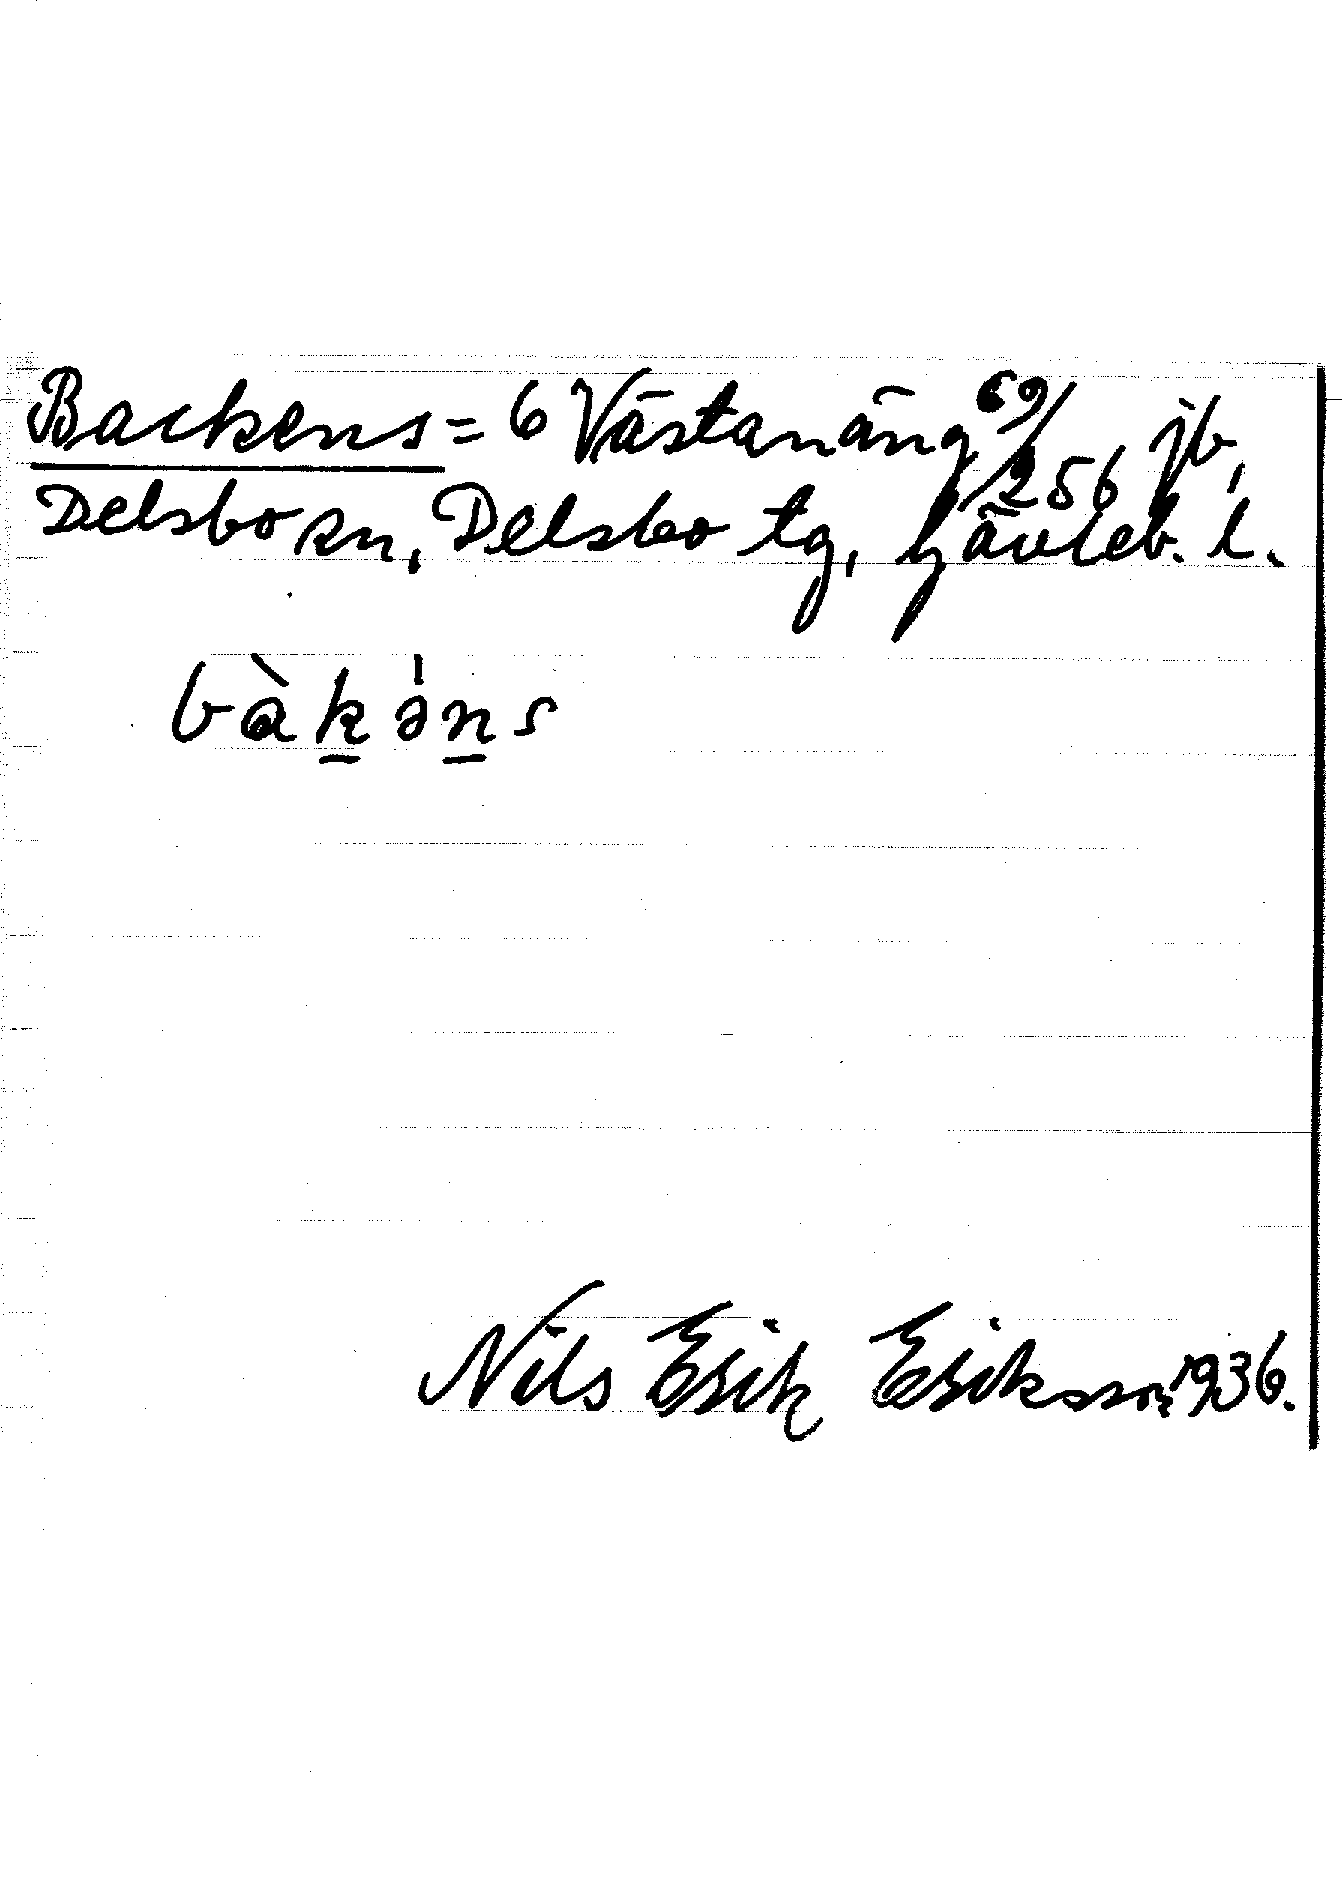 Backens = 6 Västanäng 69/256 jb,
Delsbo sn, Delsbo tg, Gävleb. l.
bàkə̍ns
Nils Erik Eriksson 1936.